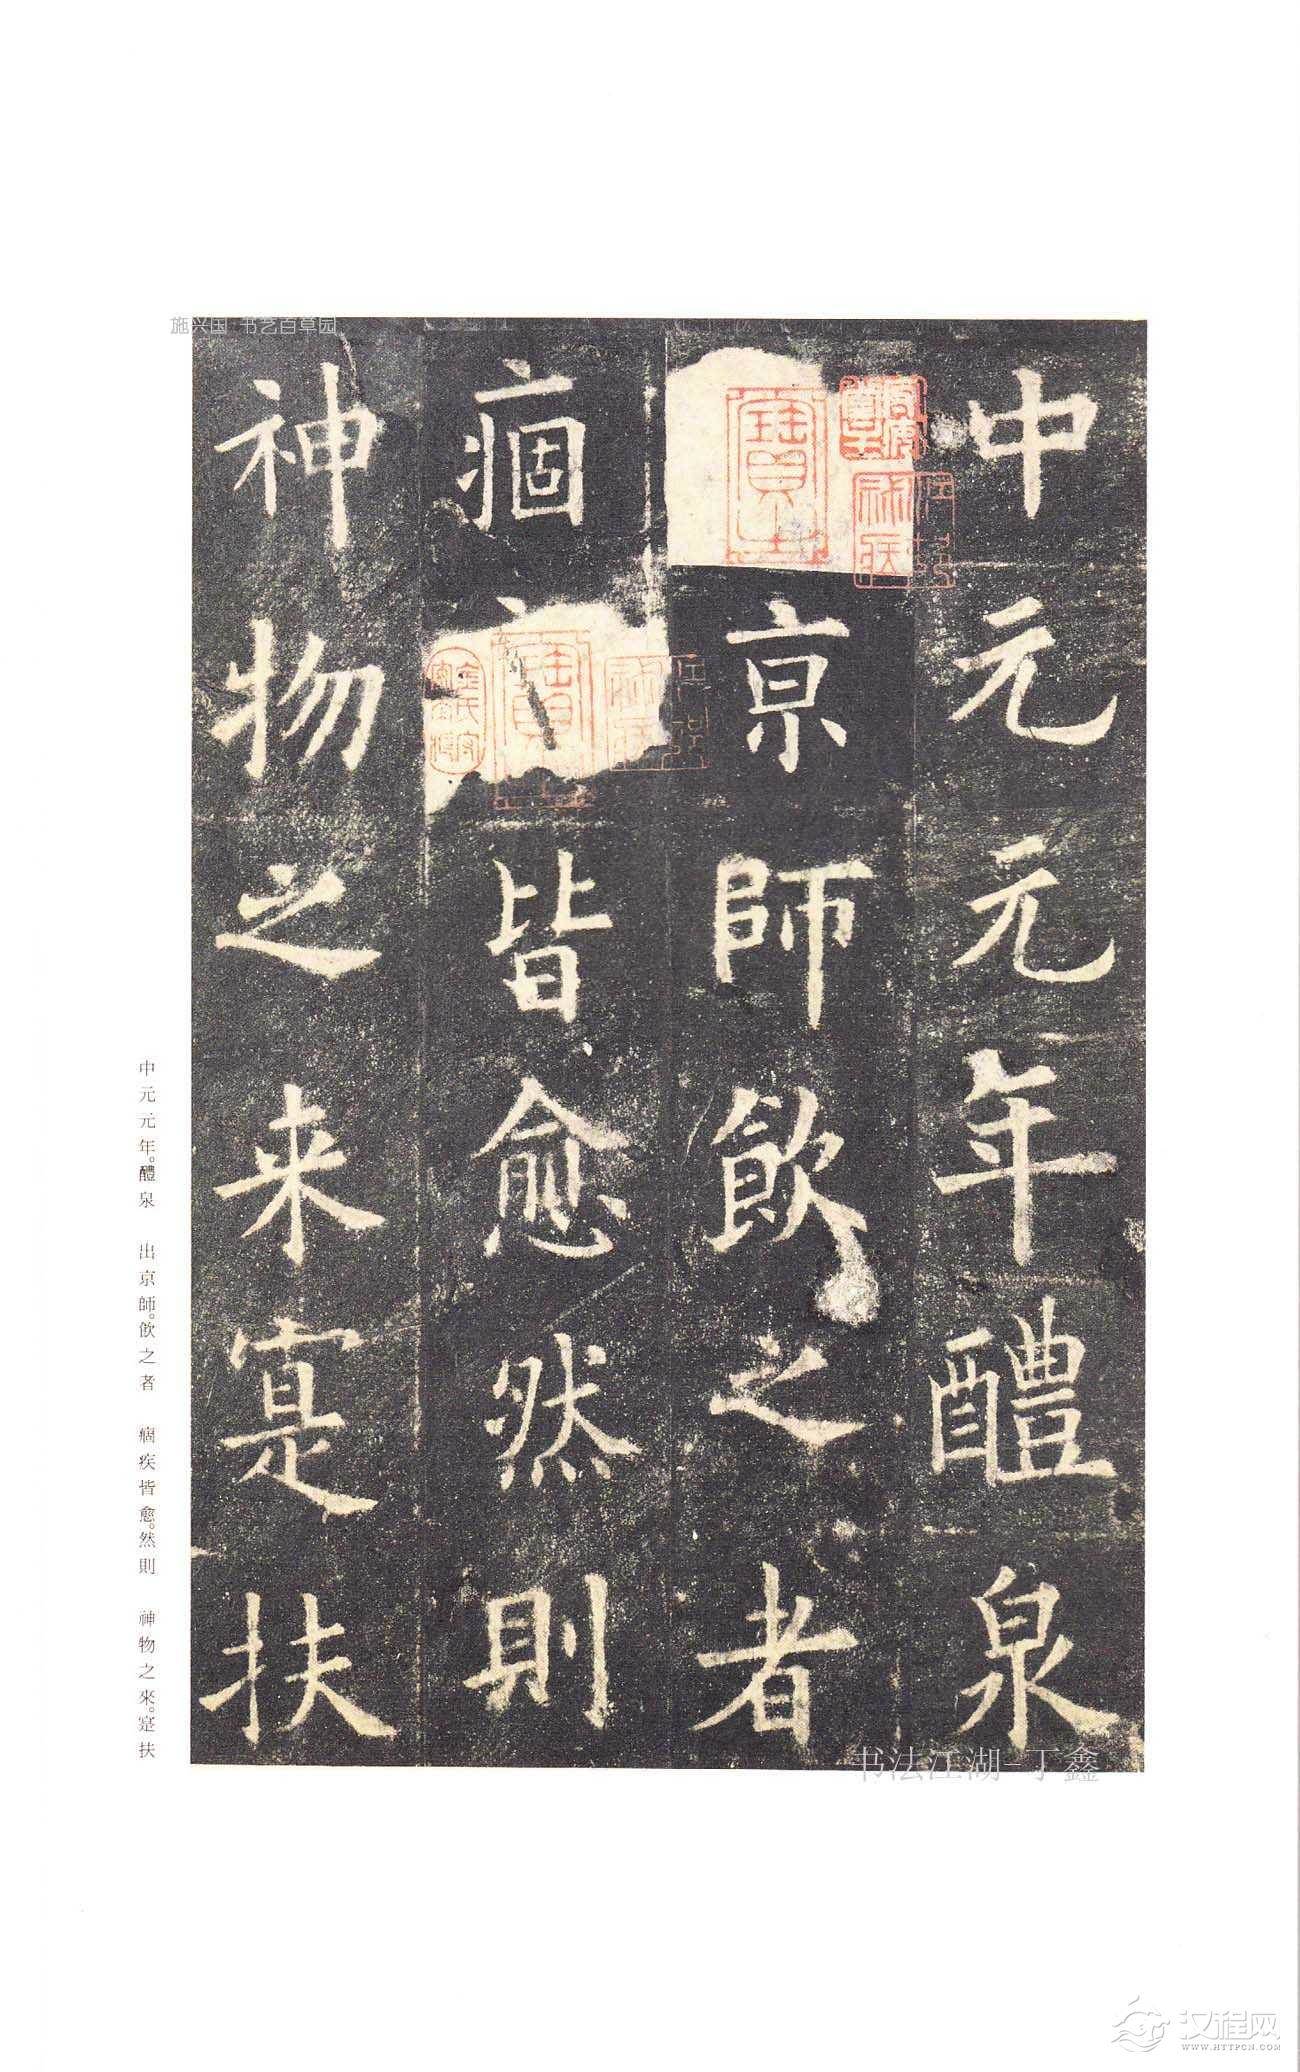 施兴国 书艺百草园
中元元年醴泉
京師飲之者
痼皆愈然則
神物之来寔扶
中元元年。醴泉 出京師。飲之者 痼疾皆愈。然則 神物之來。寔扶
书法江湖-丁鑫
汉程网
WWW.HTTPCN.COM